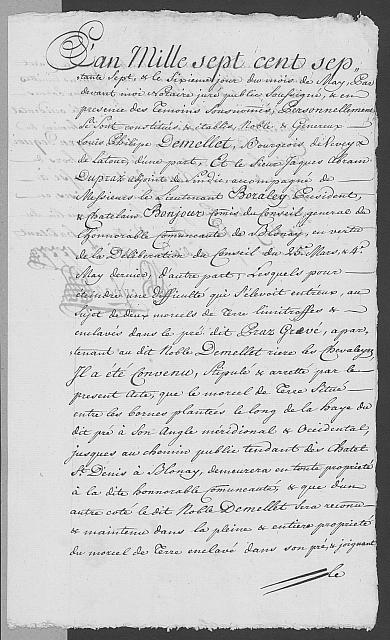 L'an Mille sept cent sep„
tante sept, & le Sixieme jour du mois de May, Par
devant moi Notaire juré public Soussigné, & en
presence des Temoins Sousnomés, Personnellement
Se Sont constitués & établis, Noble & Genereux
Louis Philipe Demellet, Bourgeois de Vevey &
de Latour, d'une part, Et le Sieur Jaques Abram
Dupraz adjoint de Sindic, accompagné de
Messieurs le Lieutenant Boraley President,
& Chatelain Bonjour Comis du Conseil general de
l'honnorable comuneauté de Blonay, en vertu
de la Déliberation du Conseil du 25. Mars, & 4e.
May dernier, d'autre part; Lesquels pour
eteindre une difficulté qui S'elevoit entreux, au
Sujet de deux morcels de Terre limitroffes &
enclavés dans le pré dit Praz Gravé, apar„
tenant au dit Noble Demellet riere les Chevaleyres
Il a été Convenu, Stipulé & arretté par le
present Acte, que le morcel de Terre Situé
entre les bornes plantées le long de la haye du
dit pré à Son Angle meridional & Occidental,
jusques au chemin public tendant dès Chatel
St. Denis à Blonay, demeurera en toute proprieté
à la dite honnorable Comuneauté, & que d'un
autre coté le dit Noble Demellet Sera reconu
& maintenu dans la pleine & entiere proprieté
du morcel de Terre enclavé dans son pré, & joignant
le